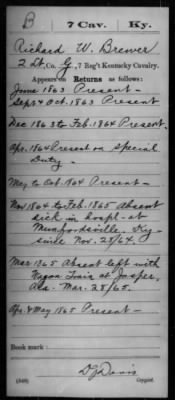 B 7 Cav. Ky.
Richard W. Brewer
2 Lt., Co. G, 7 Reg't Kentucky Cavalry.
Appears on Returns as follows:
June 1863 Present
Sept & Oct. 1863 Present
Dec 1863 to Feb. 1864 Present.
Apr. 1864 Present on Special
Duty.
May to Oct. 1864 Present
Nov 1864 to Feb. 1865 Absent
sick in hospl. at
Munfordsville. Ky
since Nov. 28/64.
Mar. 1865 Absent left with
Wagon Train at Jasper,
Ala. Mar. 28/65.
Apr. & May 1865 Present
Book mark:
D J Davis
(549) Copyist.